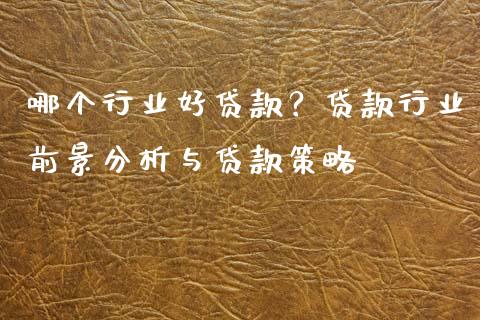 哪个行业好贷款？贷款行业
前景分析与贷款策略